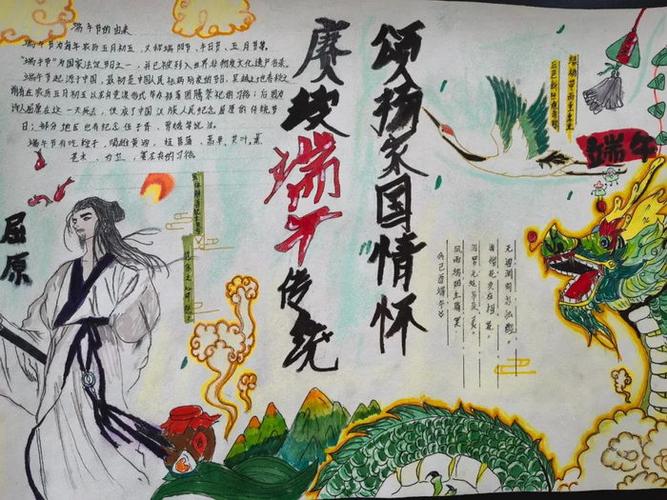 端午节的由来
端午节为每年农历五月初五,又称端阳节、午日节、五月节等。
"端午节"为国家法定节日之一,并已被列入世界非物质文化遗产名录。
端午节起源于中国,最初是中国人民祛病防疫的节日,吴越之地春秋之
前有在农历五月初五以龙舟竞渡形式举行部落图腾祭祀的习俗;后因为
诗人屈原在这一天死去,便成了中国汉族人民纪念屈原的传统节
日;部分地区也有纪念伍子胥、曹娥等说法。
端午节有吃粽子,喝雄黄酒,挂菖蒲、蒿草、艾叶,薰
苍术、白芷,赛龙舟的习俗。
颂扬家国情怀
赓续端午传统
屈原
端午
绿杨带雨垂垂重
五色新丝缠角粽
《己酉端午》
风雨端阳生晦冥
汨罗无处吊英灵
海榴花发应相笑
无酒渊明亦独醒